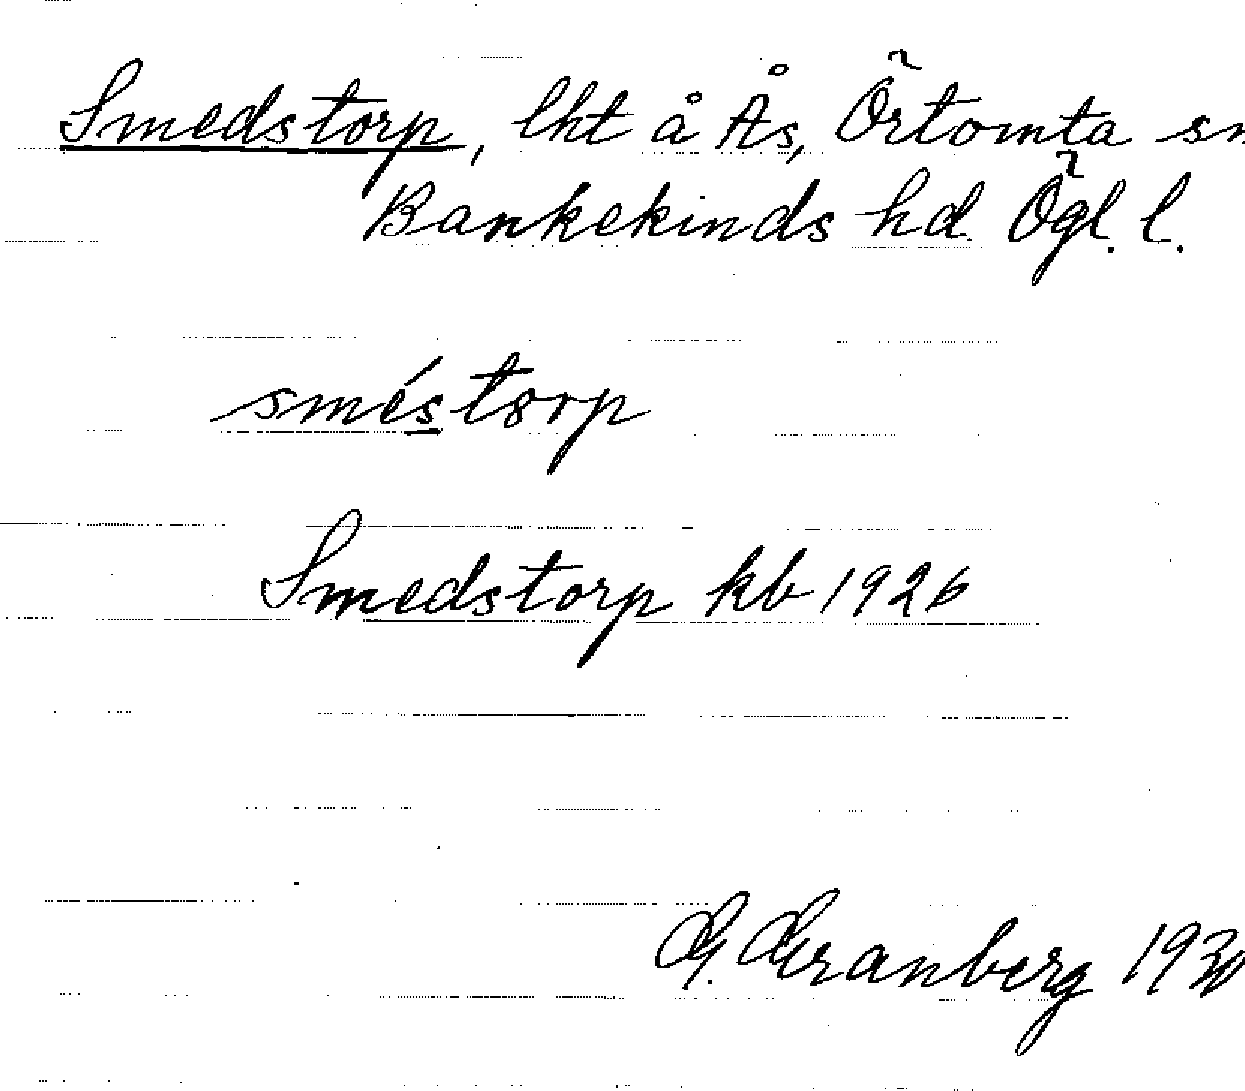 Smedstorp, lht å Ås, Örtomta sn
Bankekinds hd Ögl. l.
sméstorp
Smedstorp kb 1926
G. Granberg